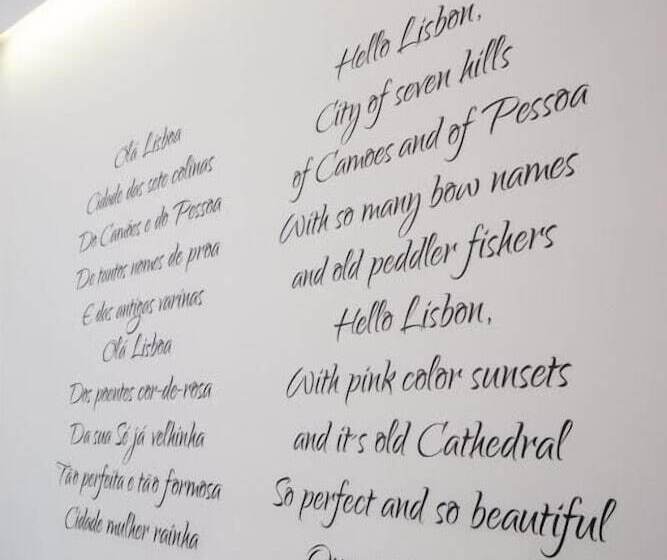 Olá Lisboa
Cidade das sete colinas
De Camões e do Pessoa
De tantos nomes de proa
E das antigas varinas
Olá Lisboa
Dos poentes cor-de-rosa
Da sua Sé já velhinha
Tão perfeita e tão formosa
Cidade mulher rainha
Hello Lisbon,
City of seven hills
of Camoes and of Pessoa
With so many bow names
and old peddler fishers
Hello Lisbon,
With pink color sunsets
and it's old Cathedral
So perfect and so beautiful